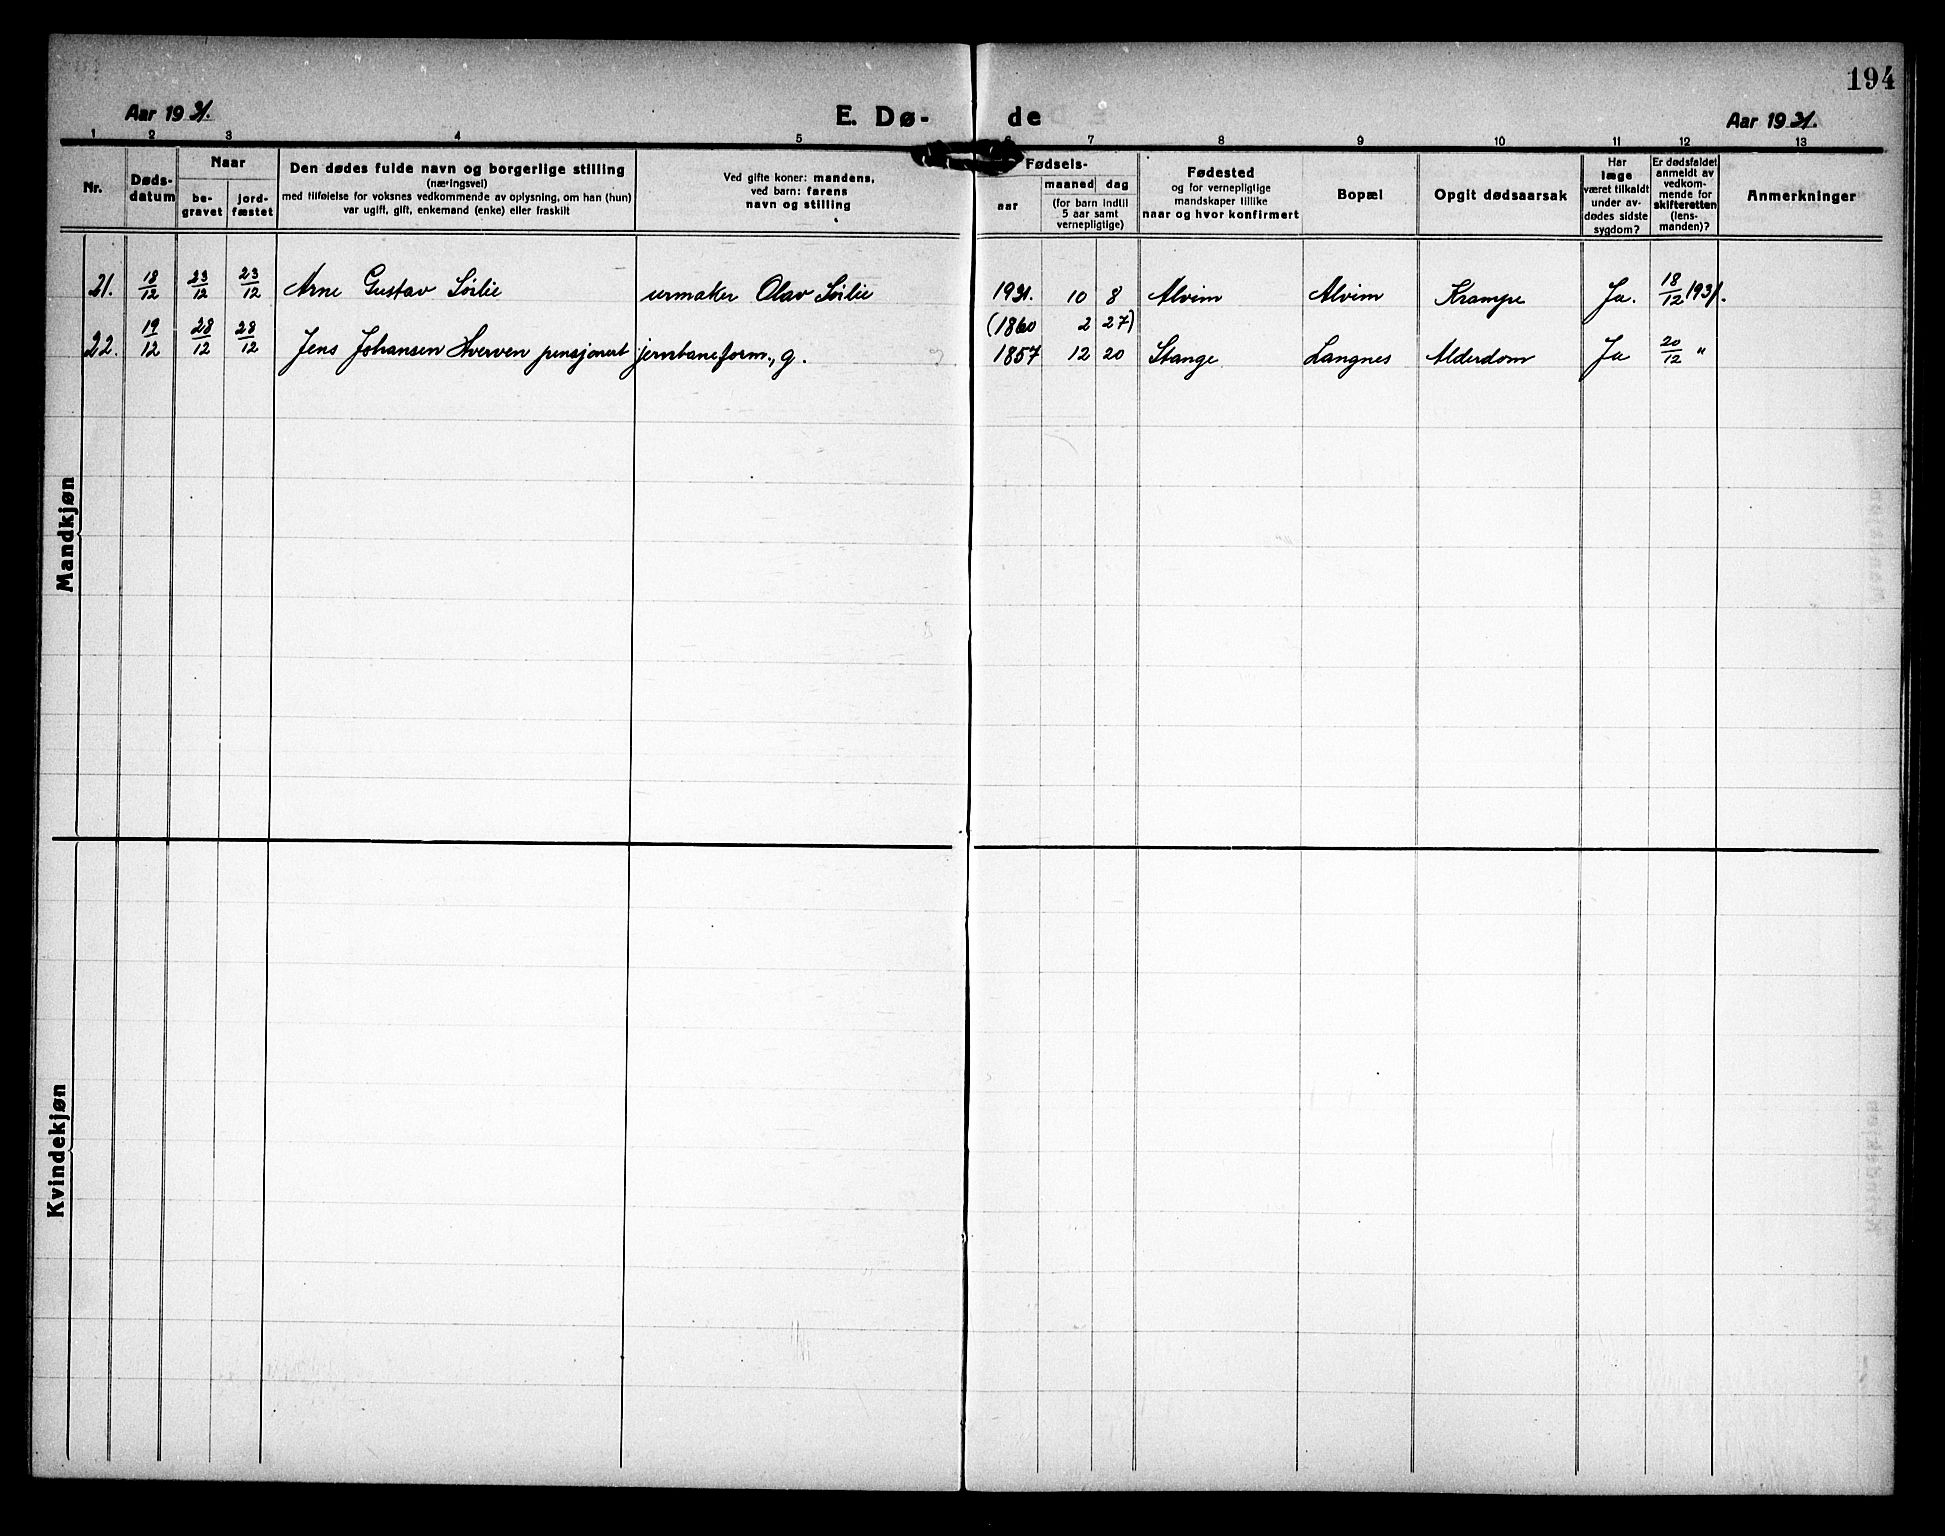 194
Aar 1931. E. Dø- de Aar 1931.
1 2 3 4 5 6 7 8 9 10 11 12 13
Nr.
Døds-
datum
Naar
be-
gravet
jord-
fæstet
Den dødes fulde navn og borgerlige stilling
(næringsvei)
med tilføielse for voksnes vedkommende av oplysning, om han (hun)
var ugift, gift, enkemand (enke) eller fraskilt
Ved gifte koner: mandens,
ved barn: farens
navn og stilling
Fødsels-
aar
maaned dag
(for barn indtil
5 aar samt
vernepligtige)
Fødested
og for vernepligtige
mandskaper tillike
naar og hvor konfirmert
Bopæl
Opgit dødsaarsak
Har
læge
været tilkaldt
under av-
dødes sidste
sygdom?
Er dødsfaldet
anmeldt av
vedkom-
mende for
skifteretten
(lens-
manden)?
Anmerkninger
Mandkjøn
21. 18/12 23/12 23/12 Arne Gustav Sørlie urmaker Olav Sørlie 1931. 10 8 Alvim Alvim Krampe Ja. 18/12 1931.
(1860 2 27)
22. 19/12 28/12 28/12 Jens Johansen Hverven pensjonert jernbaneform., g. 1857 12 20 Stange Langnes Alderdom Ja 20/12 "
Kvindekjøn